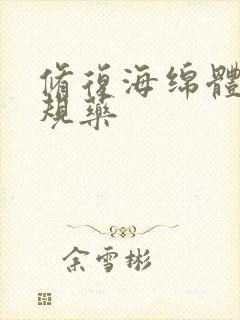 脩復海绵體
規藥
余雪彬